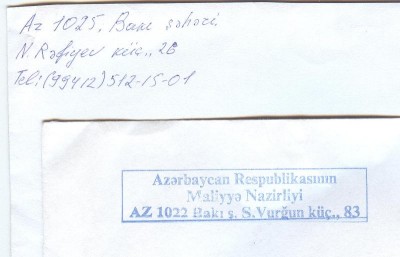 Az 1025, Bakı şəhəri
N. Rəfiyev küç., 26
Tel: (99412) 512-15-01
Azərbaycan Respublikasının
Maliyyə Nazirliyi
AZ 1022 Bakı ş. S.Vurğun küç., 83